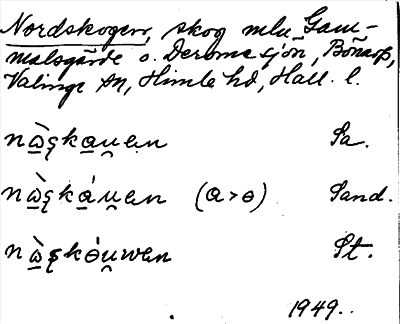 Nordskogen, skog mlu Gam-
malsgärde o. Deromesjön, Bönarp,
Valinge sn, Himle hd, Hall. l.
nạ̀ʂkau̯ən Sa.
nạ̀ʂkáu̯ən (a>ɵ) Sand.
nạ̀ʂkɵ́u̯wən St.
1949.